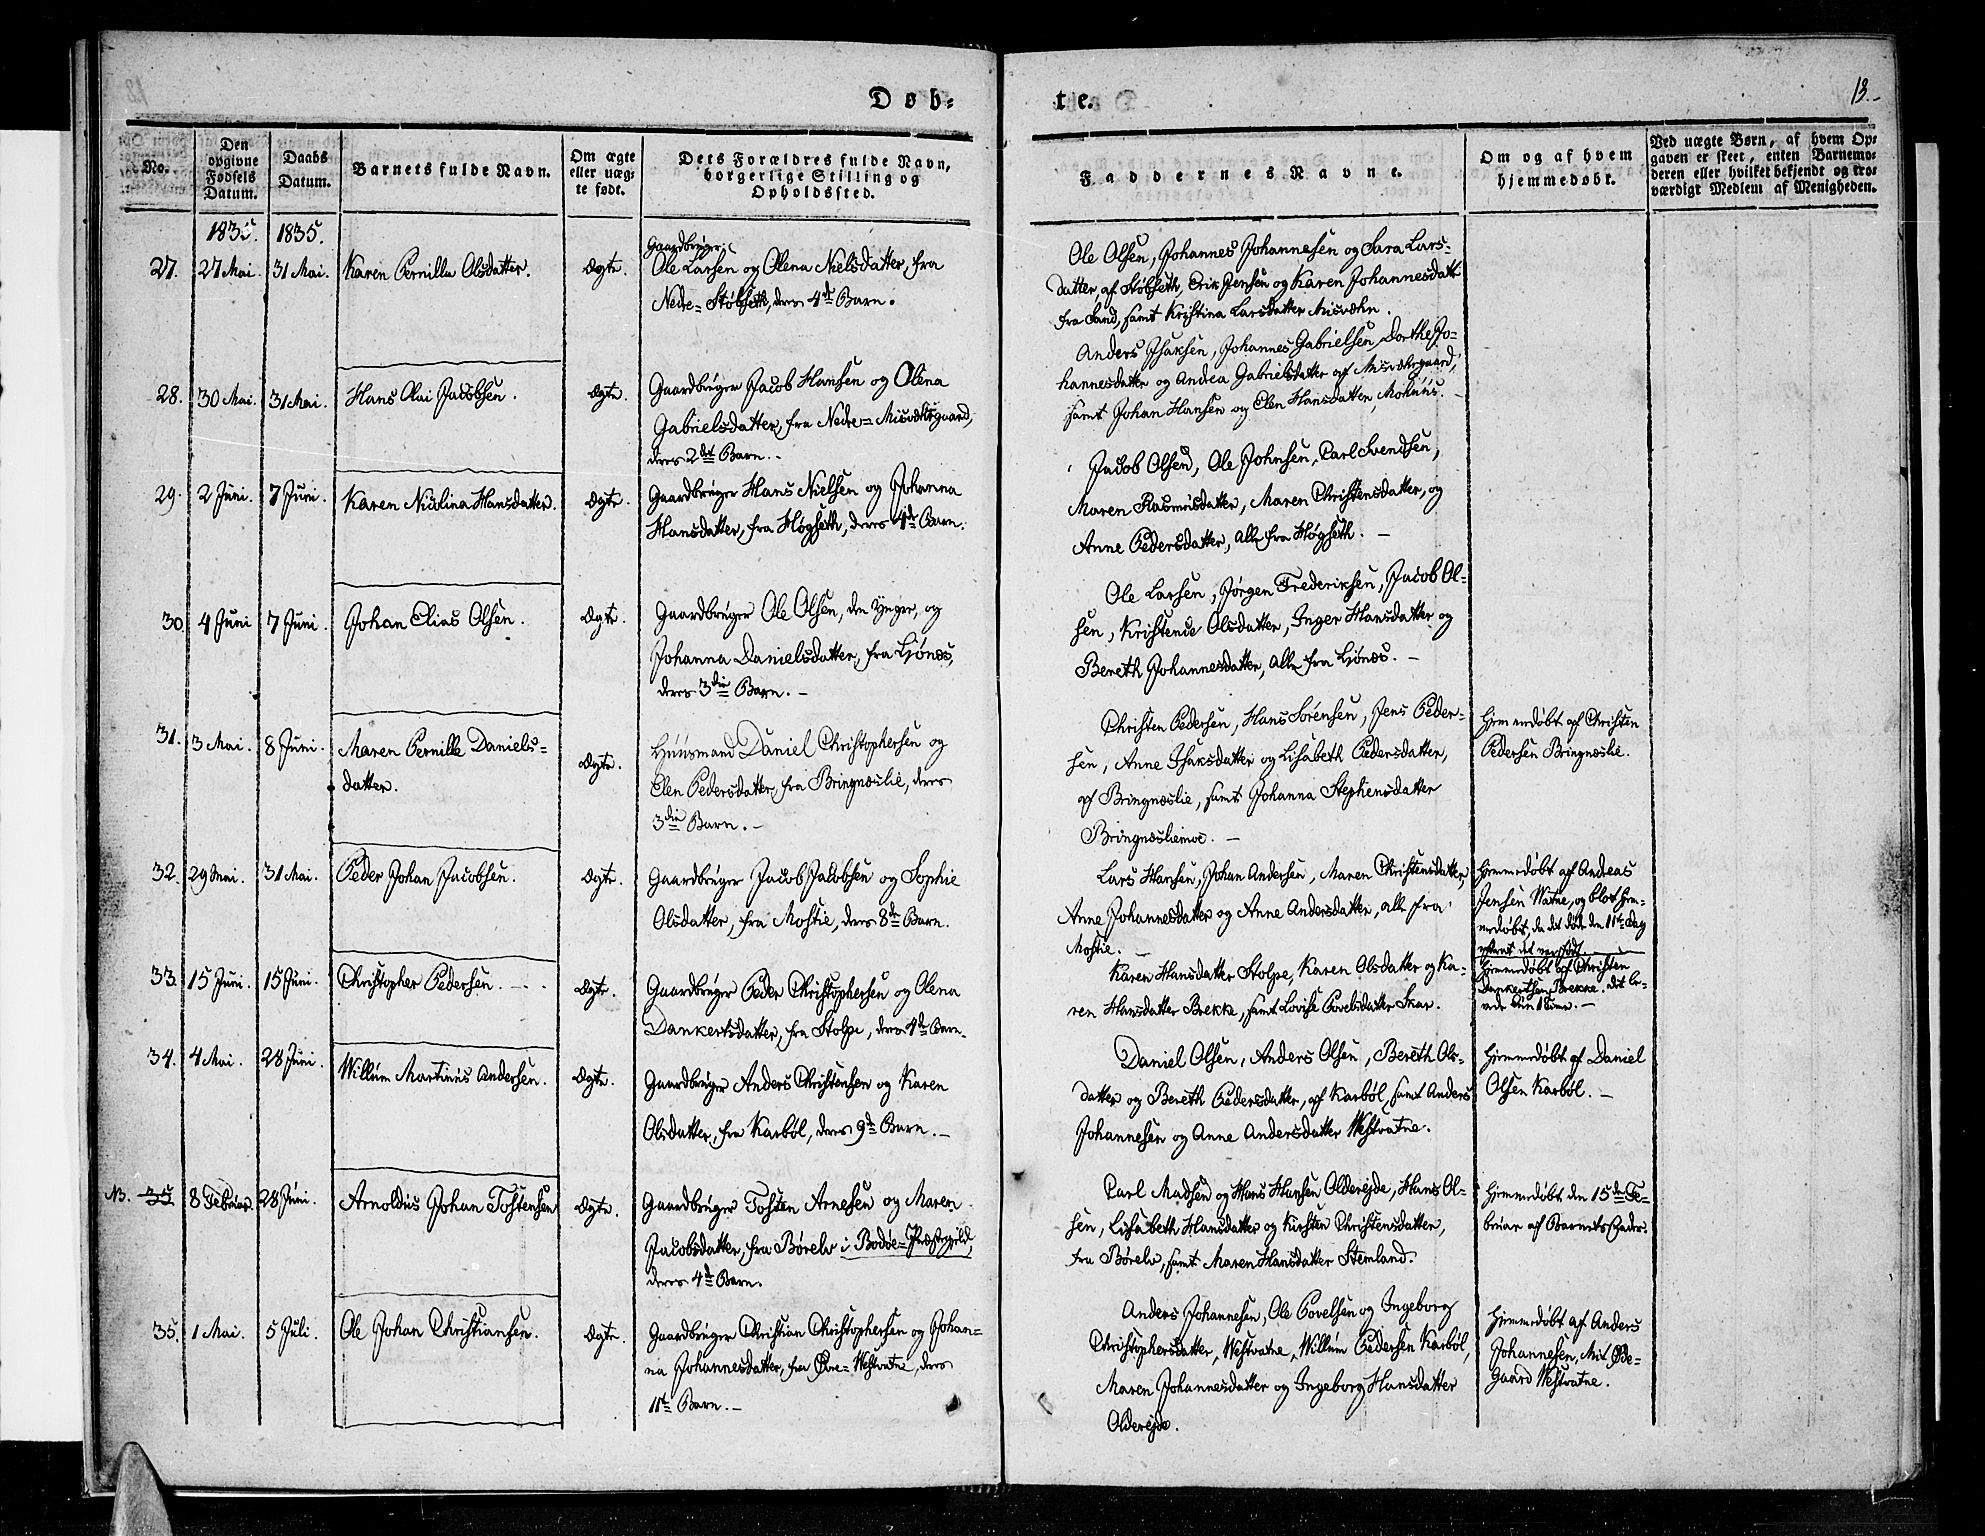 Døb-
te.
13.-
No.
Den opgivne Fødsels Datum.
Daabs Datum.
Barnets fulde Navn.
Om ægte eller uægte født.
Dets Forældres fulde Navn, borgerlige Stilling og Opholdssted.
Faddernes Navne.
Om og af hvem hjemmedøbt.
Ved uægte Børn, af hvem Op-
gaven er skeet, enten Barnemo-
deren eller hvilket bekjendt og tro-
værdigt Medlem af Menigheden.
1835. 1835.
27. 27 Mai. 31 Mai. Karen Pernilla Olsdatter. Ægte.
Gaardbruger
Ole Larsen og Olena Nielsdatter, fra
Nedre-Støbseth, deres 4de Barn.
Ole Olsen, Johannes Johannesen og Sara Lars-
datter af Støbseth, Erik Jensen og Karen Johannesdatt
fra Sand, samt Kristina Larsdatter Misvæhr.
28. 30 Mai. 31 Mai. Hans Olai Jacobsen. Ægte.
Gaardbruger Jacob Hansen og Olena
Gabrielsdatter, fra Nedre-Misværgaard,
deres 2det Barn.-
Anders Isaksen, Johannes Gabrielsen, Dorthe Jo-
hannesdatter og Andrea Gabrielsdatter af Misværgaard,
samt Johan Hansen og Elen Hansdatter, Mohuus.
29. 2 Juni. 7 Juni. Karen Nicolina Hansdatter. Ægte.
Gaardbruger Hans Nielsen og Johanna
Hansdatter, fra Høgseth, deres 4de Barn.
Jacob Olsen, Ole Johnsen, Carl Svendsen,
Maren Rasmusdatter, Maren Christensdatter, og
Anne Pedersdatter, alle fra Høgseth. -
30. 4 Juni 7 Juni. Johan Elias Olsen. Ægte.
Gaardbruger Ole Olsen, den Yngre, og
Johanna Danielsdatter, fra Ljønes,
deres 3die Barn.-
Ole Larsen, Jørgen Frederiksen, Jacob Ol-
sen, Kristence Olsdatter, Inger Hansdatter og
Bereth Johannesdatter, alle fra Ljønes. -
31. 3 Mai. 8 Juni. Maren Pernilla Daniels-
datter. Ægte.
Huusmand Daniel Christophersen og
Elen Pedersdatter, fra Bringneslie, deres
3die Barn.-
Christen Pedersen, Hans Sørensen, Jens Peder-
sen, Anne Isaksdatter og Lisabeth Pedersdatter,
af Bringneslie, samt Johanna Stephensdatter
Bringnesliemoe. -
Hjemmedøbt af Christen
Pedersen Bringneslie.
32. 29 Mai. 31 Mai. Peder Johan Jacobsen. Ægte.
Gaardbruger Jacob Jacobsen og Sophie
Olsdatter, fra Mostie, deres 8de Barn.
Lars Hansen, Johan Andersen, Maren Christensdatter,
Anne Johannesdatter og Anne Andersdatter, alle fra
Mostie. -
Hjemmedøbt af Andreas
Jensen Watne, og blot hjem-
medøbt, da det døde den 11te Dag
33. 15 Juni. 15 Juni. Christopher Pedersen. Ægte.
Gaardbruger Peder Christophersen og Olena
Dankertsdatter, fra Stolpe, deres 4de Barn.
Karen Hansdatter Stolpe, Karen Olsdatter og Ka-
ren Hansdatter Brekke, samt Lovise Povelsdatter Skar.
Hjemmedøbt af Christen
Dankertsen Brekke. Det le-
vede kun 1 Time. -
34. 4 Mai. 28 Juni. Willum Martinus Andersen. Ægte.
Gaardbruger Anders Christensen og Karen
Olsdatter, fra Karbøl, deres 9de Barn.-
Daniel Olsen, Anders Olsen, Bereth Ols-
datter og Bereth Pedersdatter, af Karbøl, samt Anders
Johannesen og Anne Andersdatter Westvatne.
Hjemmedøbt af Daniel
Olsen Karbøl. -
NB. 35. 8 Februar. 28 Juni. Arnoldus Johan Tostensen Ægte.
Gaardbruger Tosten Arnesen og Maren
Jacobsdatter, fra Børelv i Bodøe-Præstegjeld,
deres 4de Barn.
Carl Madsen og Hans Hansen Oldereide, Hans Ol-
sen, Lisabeth Hansdatter og Kirsten Christensdatter,
fra Børelv, samt Maren Hansdatter Stemland.
Hjemmedøbt den 15de Fe-
bruar af Barnets Fader.
35. 1 Mai. 5 Juli. Ole Johan Christiansen. Ægte.
Gaardbruger Christian Christophersen og Johan-
na Johannesdatter, fra Øvre-Westvatne, deres
11te Barn.-
Anders Johannesen, Ole Povelsen og Ingeborg
Christophersdatter, Westvatne, Willum Pedersen Karbøl,
Maren Johannesdatter og Ingeborg Hansdatter
Oldereide.
Hjemmedøbt af Anders
Johannesen, Mit Øde-
Gaard Westvatne.